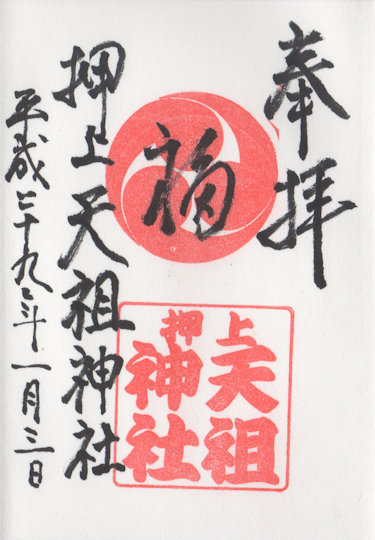 奉拝
福
上天祖
押神社
押上天祖神社
平成二十九年一月三日